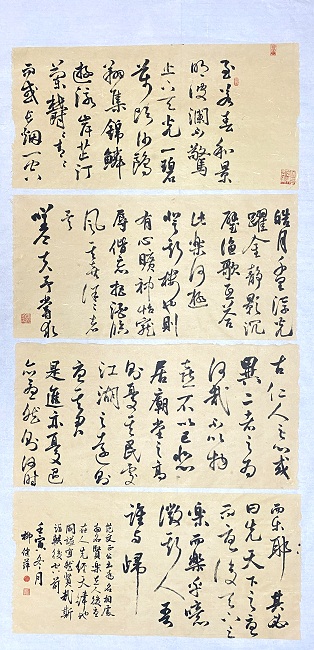 至若春和景
明波澜不驚
上下天光一碧
萬顷沙鷗
翔集錦鳞
游泳岸芷汀
蘭郁郁青青
而或长烟一空
皓月千里浮光
躍金静影沉
璧渔歌互答
此樂何极
登斯楼也则
有心曠神怡宠
辱偕忘把酒临
风其喜洋洋者
矣
嗟夫予嘗求
古仁人之心或
異二者之为
何哉不以物
喜不以己悲
居廟堂之高
则憂其民处
江湖之远则
憂其君
是進亦憂退
亦憂然则何时
而乐耶 其必
曰先天下之憂
而憂後天下之
樂而樂乎噫
微斯人吾
谁与歸
壬寅冬月